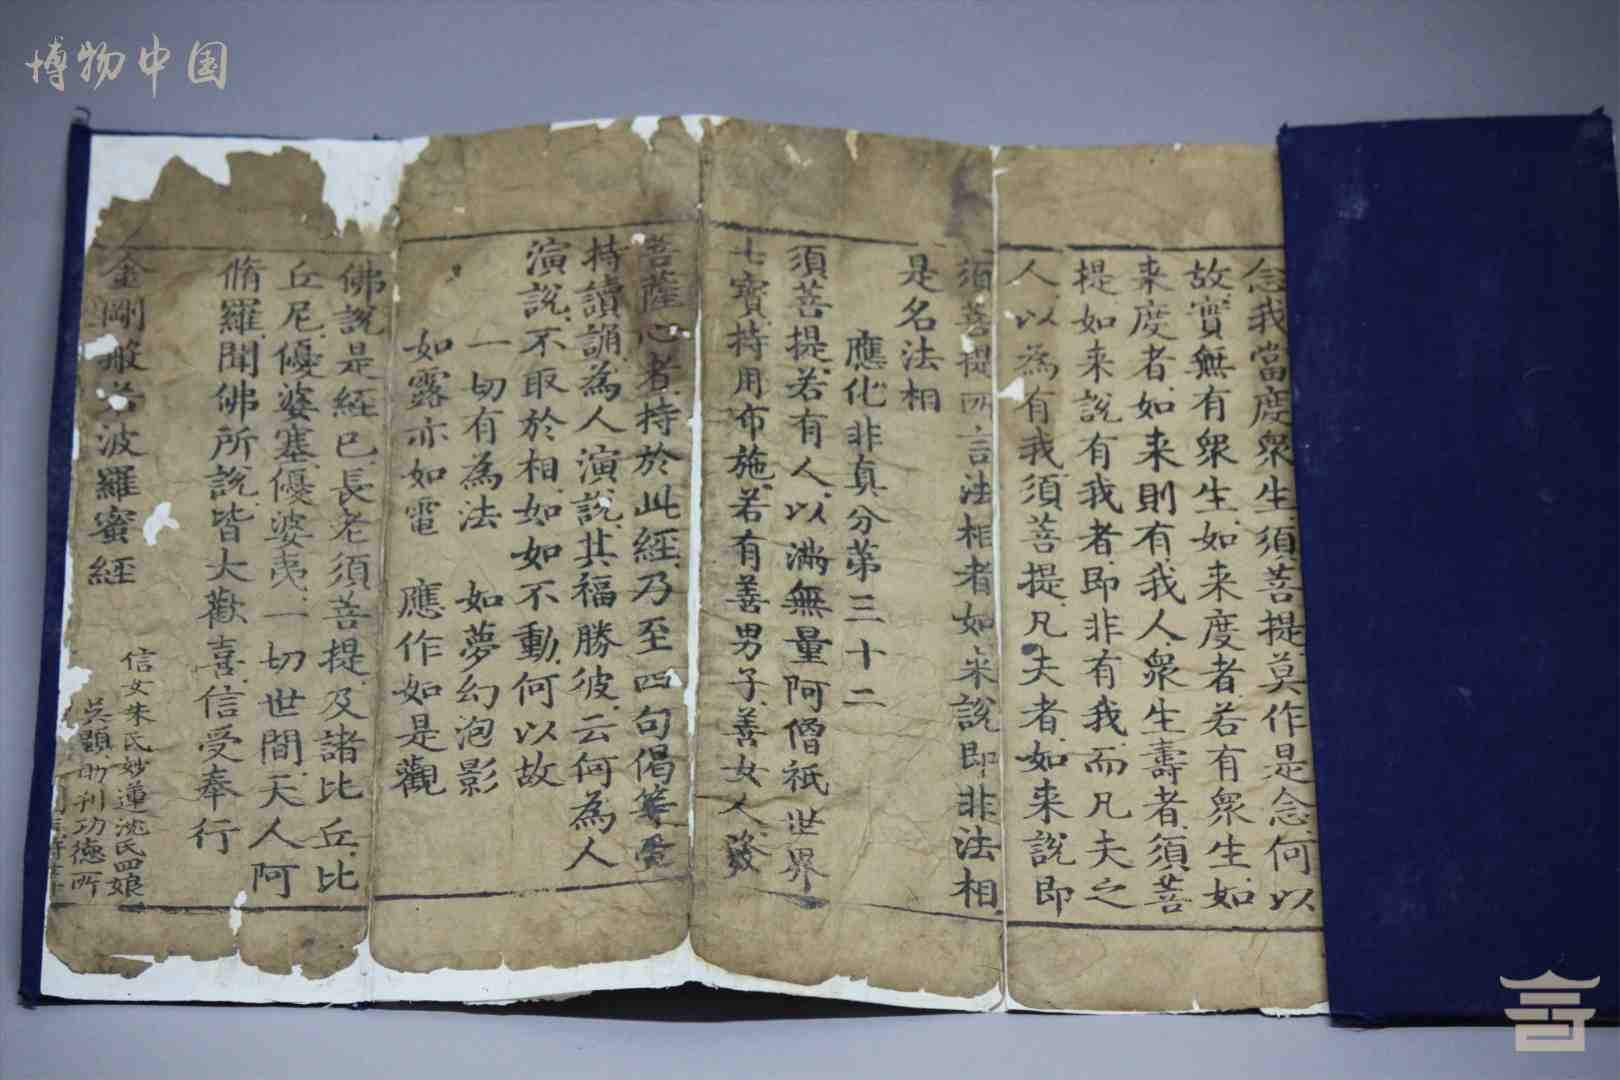 博物中国
念我當度衆生須菩提莫作是念何以
故實無有衆生如来度者若有衆生如
来度者如来則有我人衆生壽者須菩
提如来說有我者即非有我而凡夫之
人以為有我須菩提凡夫者如来說即
須菩提所言法相者如来說即非法相
是名法相
應化非真分第三十二
須菩提若有人以滿無量阿僧祇世界
七寶持用布施若有善男子善女人發
菩薩心者持於此經乃至四句偈等受
持讀誦為人演說其福勝彼云何為人
演說不取於相如如不動何以故
一切有為法 如夢幻泡影
如露亦如電 應作如是觀
佛說是經已長老須菩提及諸比丘比
丘尼優婆塞優婆夷一切世間天人阿
脩羅聞佛所說皆大歡喜信受奉行
金剛般若波羅蜜經
信女朱氏妙蓮沈氏四娘
吳顕助刊功德所